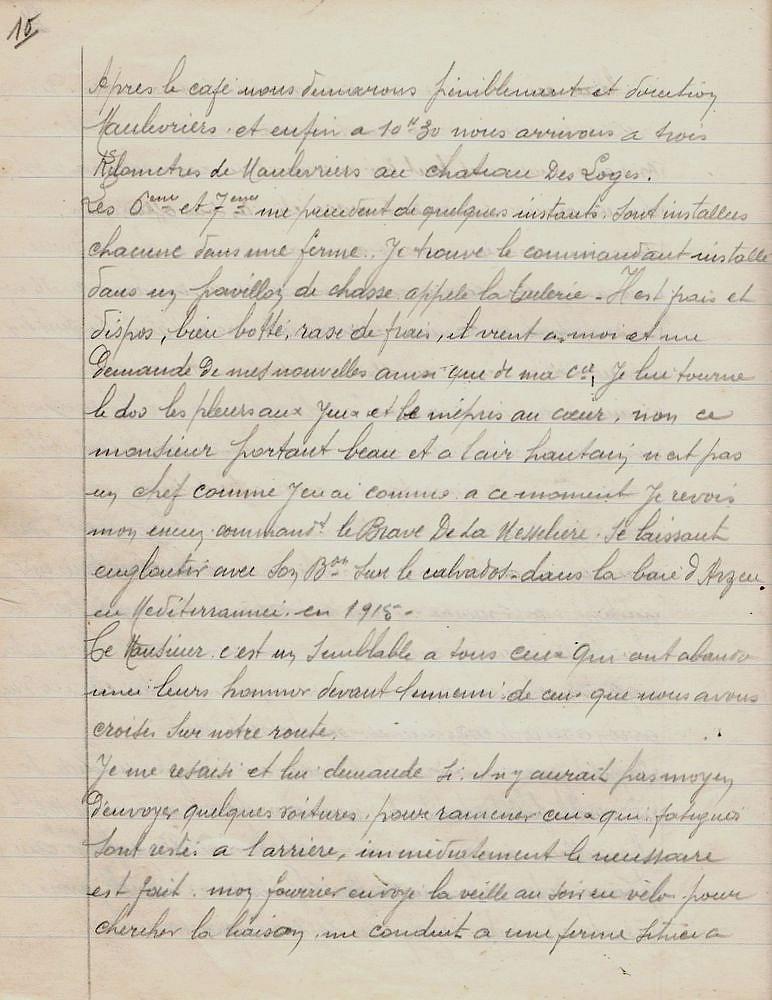 15
Apres le café nous demarons péniblement et direction
Maulevriers. et enfin a 10H30 nous arrivons a trois
Kilometres de Maulevriers au chateau Des Loges.
Les 6eme et 7emes me precedent de quelques instants. Sont installees
chacune dans une ferme. Je trouve le commandant installé
dans un pavillon de chasse appele la Tuilerie - Il est frais et
dispos, bien botté, rasé de frais, il vient a moi et me
Demande De mes nouvelles ainsi que de ma Cie, Je lui tourne
le dos les pleurs aux yeux et le mépris au cœur, non ce
monsieur portant beau et a l'air hautain n est pas
un chef comme J en ai connus a ce moment Je revois
mon ancien command't le Brave De La Messeliere. Se laissant
engloutir avec Son Bon Sur le calvados - dans la baie d Arzeu
en Mediterrannée. en 1915 -
Ce Monsieur. c'est un Semblable a tous ceux qui ont abando
nnée leurs hommes devant l'ennemi de ceux que nous avons
croisés Sur notre route.
Je me resaisi et lui demande Si il n y aurait pas moyen
D'envoyer quelques voitures pour ramener ceux qui fatigués
Sont restés a l'arrière, immédiatement le necessaire
est fait. mon fourrier envoyé la veille au soir en vélo pour
chercher la liaison me conduit a une ferme Située a